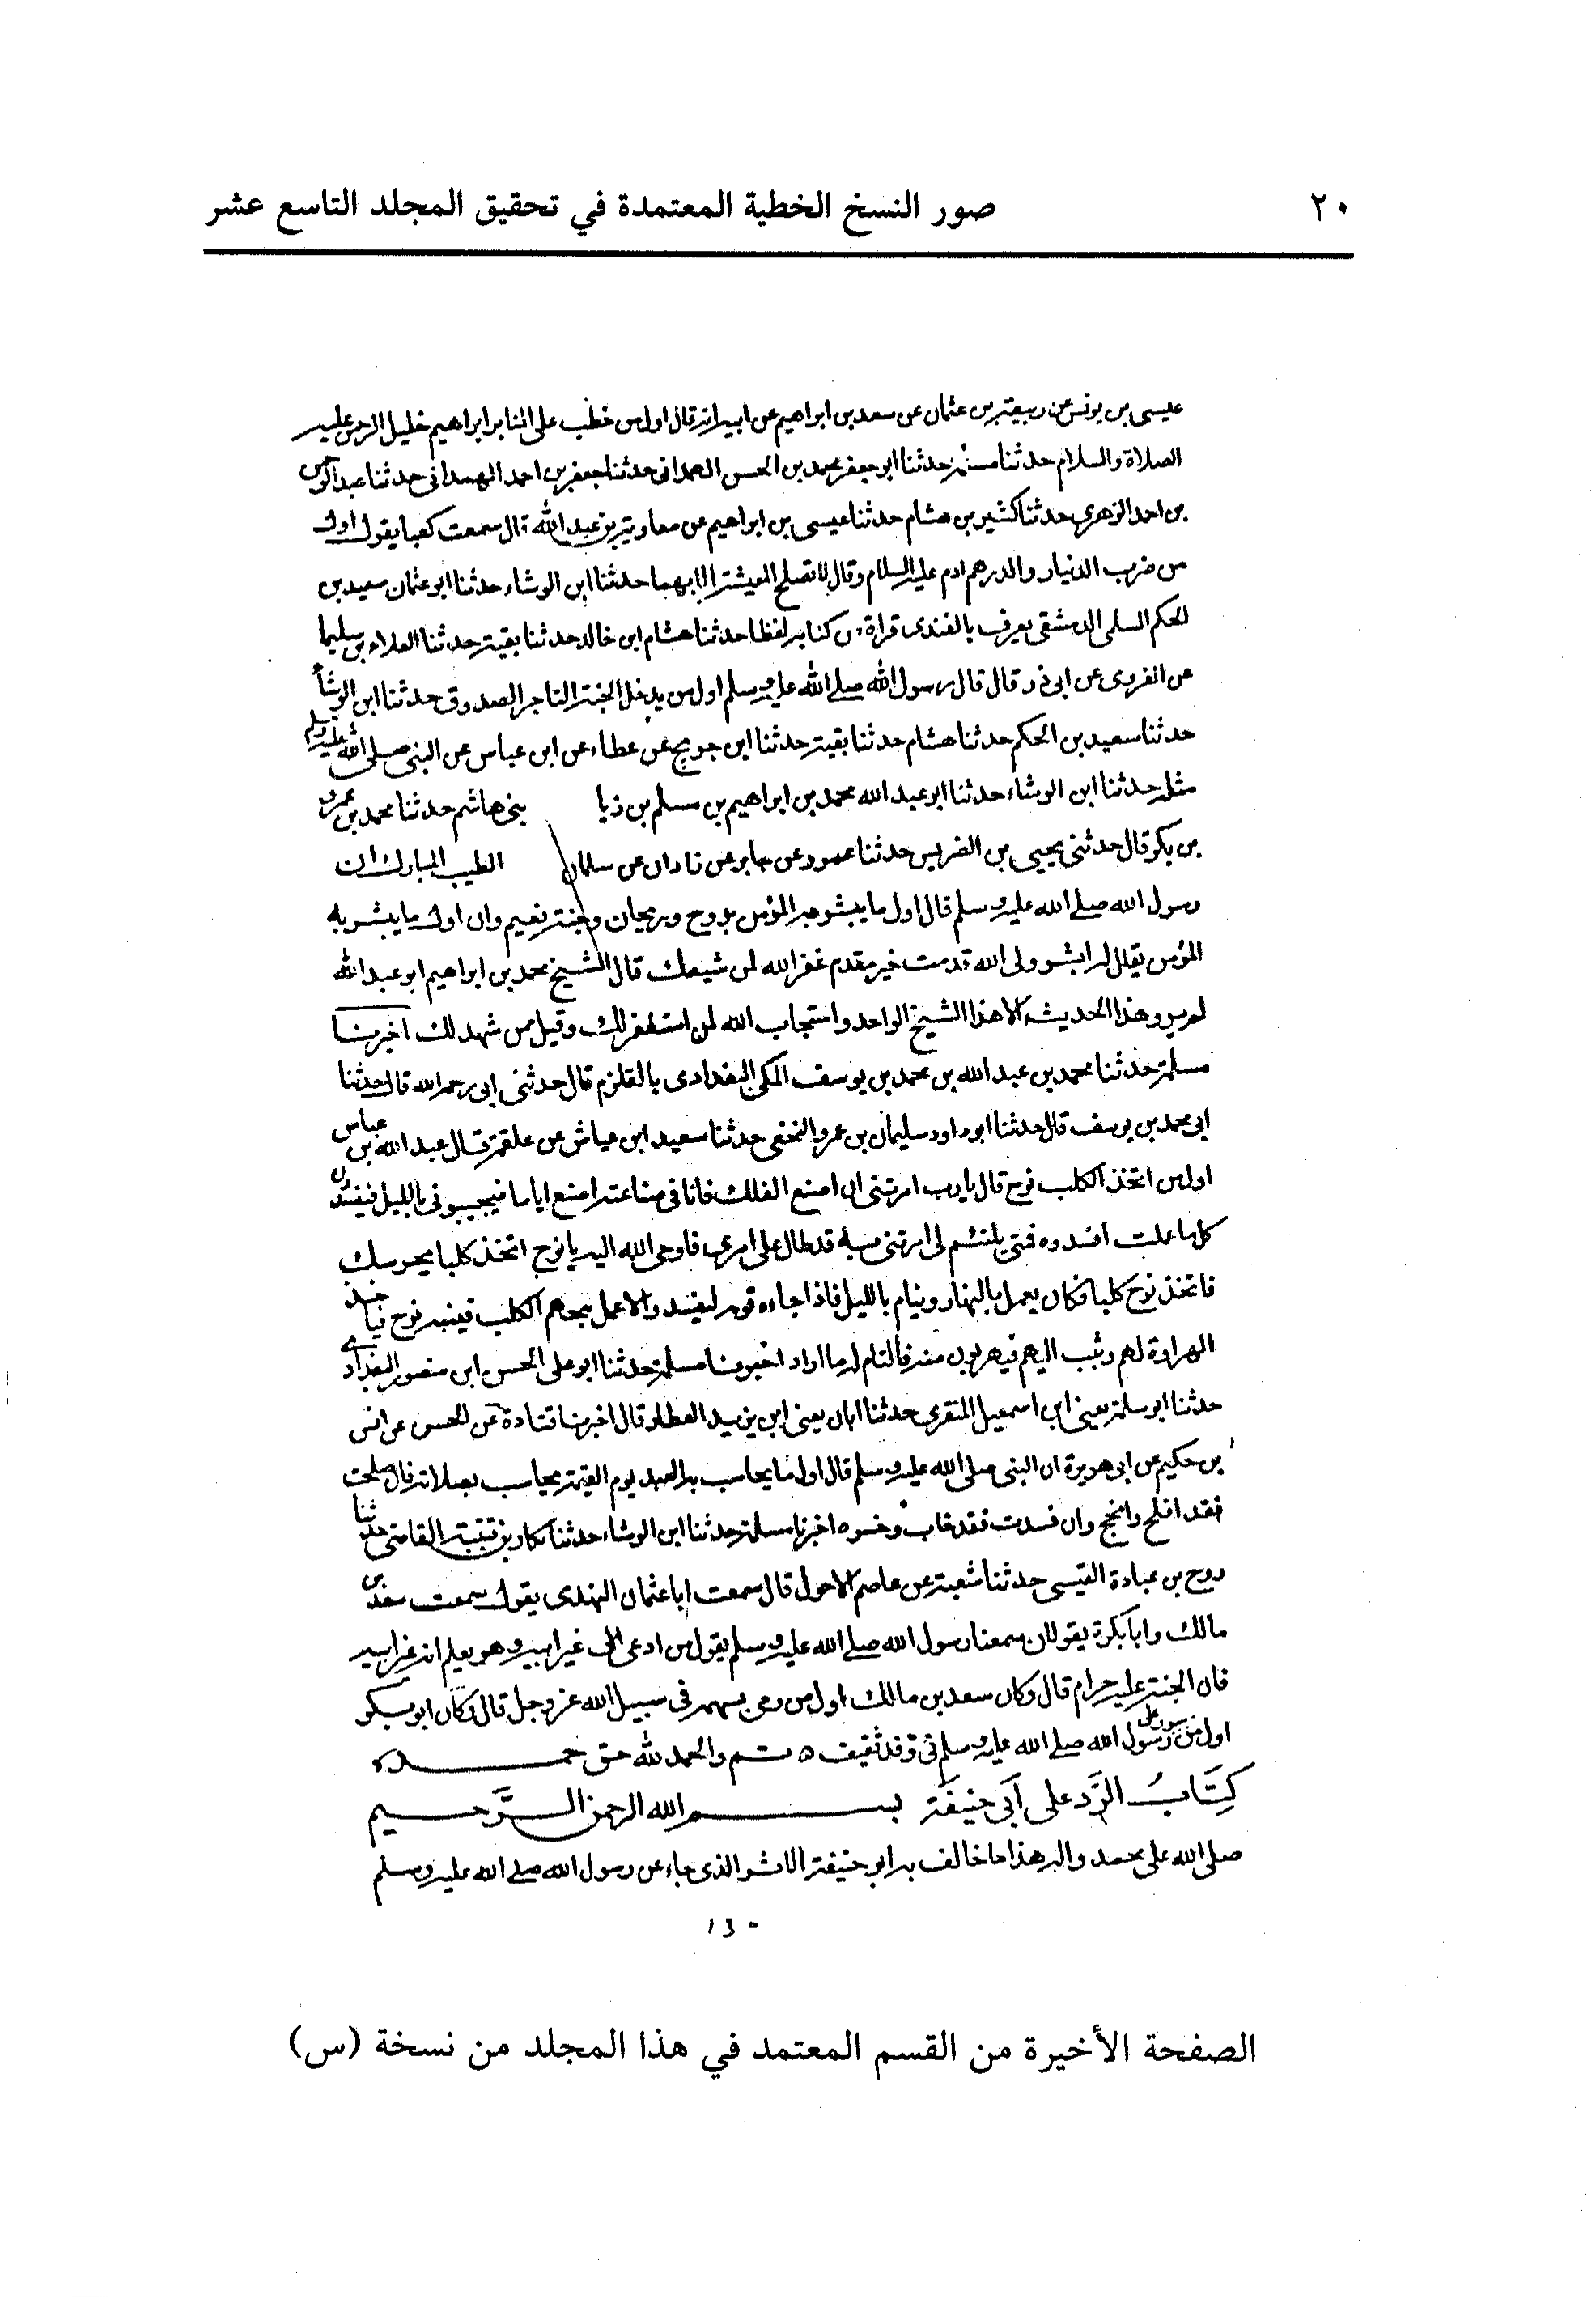 ٢٠
صور النسخ الخطية المعتمدة في تحقيق المجلد التاسع عشر
عيسى بن يونس عن ربيعة بن عثمان عن سعد بن ابراهيم عن ابيه انه قال اول من خطب على المنابر ابراهيم خليل الرحمن عليه
الصلاة والسلام حدثنا مسلمة حدثنا ابو جعفر محمد بن الحسن الهمدانى حدثنا جعفر بن احمد الهمدانى حدثنا عبد الرحمن
بن احمد الزهرى حدثنا كثير بن هشام حدثنا عيسى بن ابراهيم عن معاوية بن عبد الله قال سمعت كعبا يقول اول
من ضرب الدنيار والدرهم ادم عليه السلام وقال لا تصلح المعيشة الا بهما حدثنا ابن الوشاء حدثنا ابو عثمان سعيد بن
الحكم السلمى الدمشقى يعرف بالفندى قراة من كتابه لفظا حدثنا هشام ابن خالد حدثنا بقية حدثنا العلاء بن سليما
عن الفروى عن ابى ذر قال قال رسول الله صلى الله عليه وسلم اول من يدخل الجنة التاجر الصدوق حدثنا ابن الوشأ
حدثنا سعيد بن الحكم حدثنا هشام حدثنا بقية حدثنا ابن جريج عن عطاء عن ابن عباس عن النبى صلى الله عليه وسلم
مثله حدثنا ابن الوشاء حدثنا ابو عبد الله محمد بن ابراهيم بن مسلم بن زيا بنى هاشم حدثنا محمد بن عمرو
بن بكر قال حدثنى يحيى بن الضريس حدثنا عمرو عن جابر عن زادان عن سلمان الطيب المبارك ان
رسول الله صلى الله عليه وسلم قال اول ما يبشر به المؤمن بروح وريحان وجنة نعيم وان اول ما يبشر به
المؤمن يقال له ابشر ولى الله قدمت خير مقدم غفر الله لمن شيعك قال الشيخ محمد بن ابراهيم ابو عبد الله
لم يرو هذا الحديث الا هذا الشيخ الواحد واستجاب الله لمن استغفر لك وقيل من شهد لك اخبرنا
مسلمة حدثنا محمد بن عبد الله بن محمد بن يوسف المكى البغدادى بالقلزم قال حدثنى ابى رحمه الله قال حدثنا
ابى محمد بن يوسف قال حدثنا ابو داود سليمان بن عمرو النخعى حدثنا سعيد ابن عياش عن علقمة قال عبد الله بن عباس
اول من اتخذ الكلب نوح قال يا رب امرتنى ان اصنع الفلك فانا فى صناعته اصنع اياما فيجيبونى بالليل فيفسدون
كلما عملت افسدوه فمتى يلتئم لى امرتنى به قد طال على امرى فاوحى الله اليه يا نوح اتخذ كلبا يحرسك
فاتخذ نوح كلبا فكان يعمل بالنهار وينام بالليل فاذا جاءه قومه ليفسدوا الاعمل نبحهم الكلب فينتبه نوح فياخذ
الهراوة لهم ويثب اليهم فيهربون منه فالتام له ما اراد اخبرنا مسلمة حدثنا ابو على الحسن ابن منصور البغدادى
حدثنا ابو سلمة يعنى ابن اسمعيل المنقرى حدثنا ابان يعنى ابن يزيد العطار قال اخبرنا قتادة عن الحسن عن انس
بن حكيم عن ابى هريرة ان النبى صلى الله عليه وسلم قال اول ما يحاسب به العبد يوم القيمة يحاسب بصلاته فان صلحت
فقد افلح وانجح وان فسدت فقد خاب وخسر ه اخبرنا مسلمة حدثنا ابن الوشاء حدثنا بكار بن قتيبة القاضى حدثنا
روح بن عبادة القيسى حدثنا شعبة عن عاصم الاحول قال سمعت ابا عثمان النهدى يقول سمعت سعد بن
مالك وابا بكرة يقولان سمعنا رسول الله صلى الله عليه وسلم يقول من ادعى الى غير ابيه وهو يعلم انه غير ابيه
فان الجنة عليه حرام قال وكان سعد بن مالك اول من رمى بسهم فى سبيل الله عز وجل قال وكان ابو بكر
اول من رسول الله صلى الله عليه وسلم فى وفد ثقيف ه تم والحمد لله حق حمده
كتاب الرد على أبى حنيفة بسم الله الرحمن الرحيم
صلى الله على محمد واله هذا ما خالف به ابو حنيفة الاثر الذى جاء عن رسول الله صلى الله عليه وسلم
الصفحة الأخيرة من القسم المعتمد في هذا المجلد من نسخة (س)